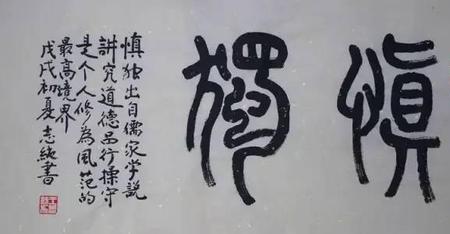 慎獨
慎独出自儒家学説
讲究道德品行操守
是个人修為風范的
最高境界
戊戌初夏志純書